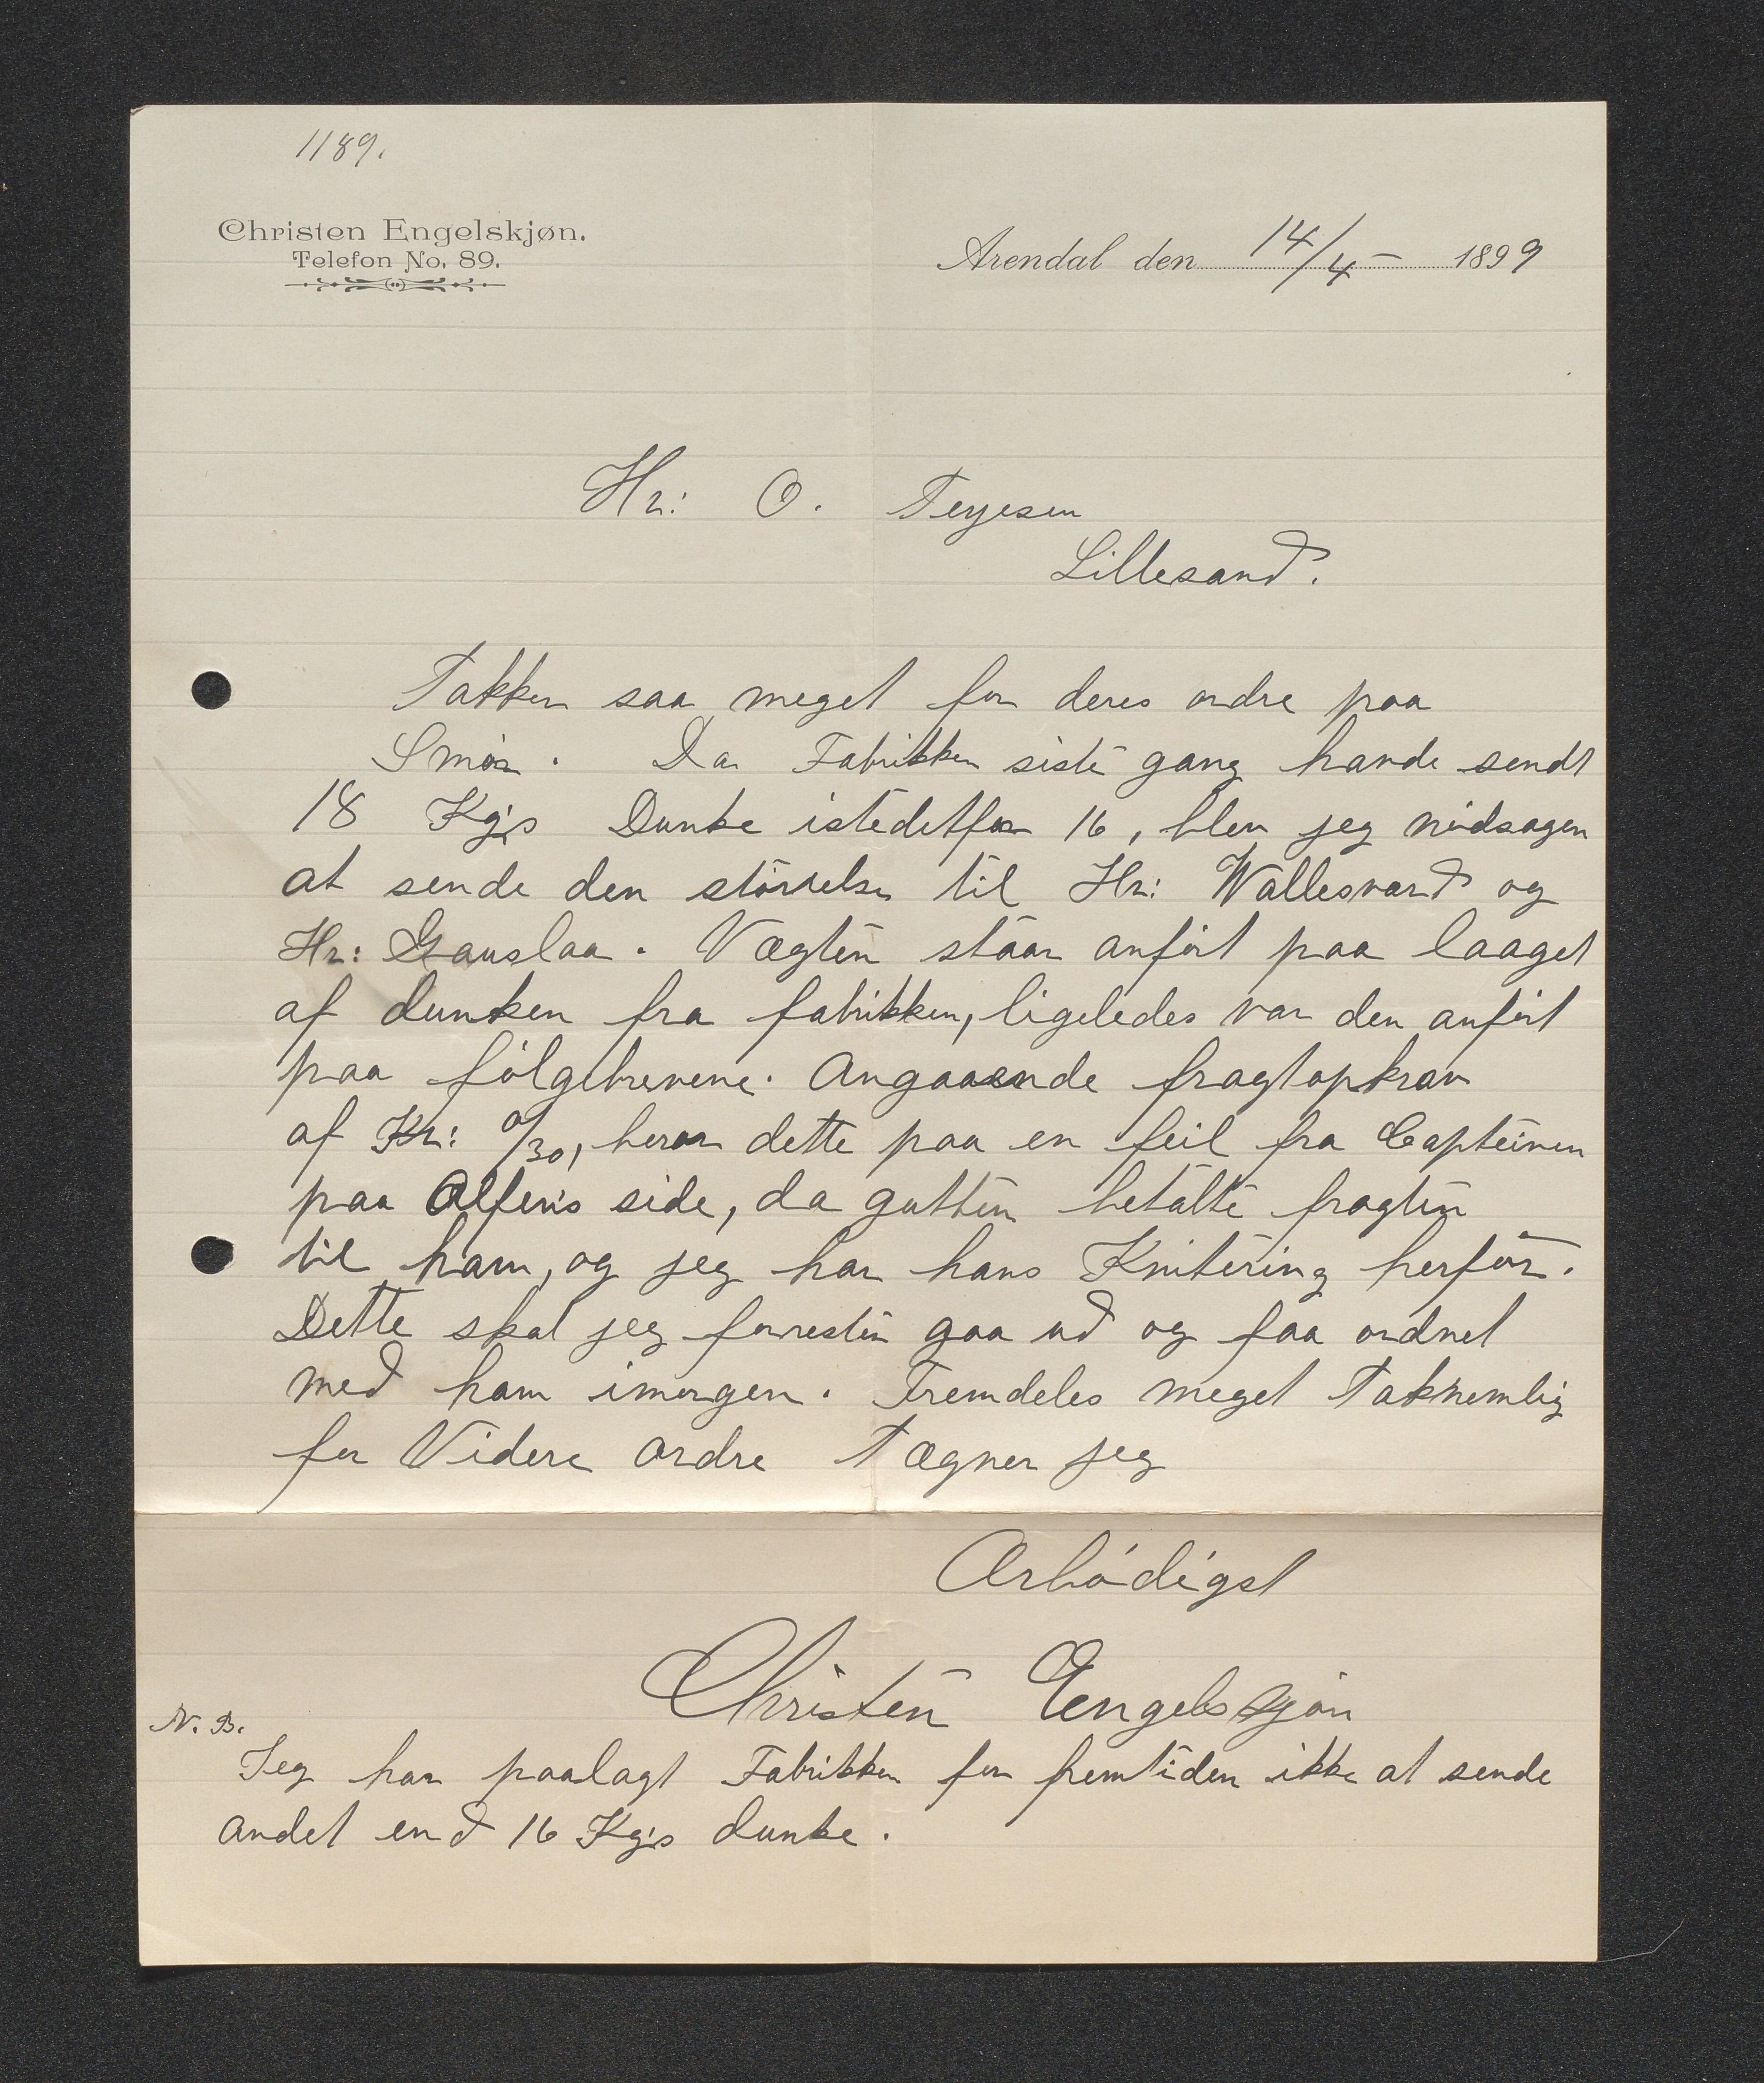 1189.
Christen Engelskjøn.
Telefon No. 89.
Arendal den 14/4 - 1899
Hr: O. Terjesen
Lillesand.
Takker saa meget for deres ordre paa
Smør. Da Fabrikken siste gang havde sendt
18 Kg's Dunke istedetfor 16, blev jeg nødsagen
at sende den størrelse til Hr: Wallesverd og
Hr: Gauslaa. Vægten staar anført paa laaget
af dunken fra fabrikken, ligeledes var den anført
paa følgebrevene. Angaaende fragtopkrav
af Kr: 0/30, beror dette paa en feil fra Capteinen
paa Alfen's side, da gutten betalte fragten
til ham, og jeg har hans Kvitering herfor.
Dette skal jeg forresten gaa ud og faa ordnet
med ham imorgen. Fremdeles meget Taknemlig
for Videre ordre Tægner jeg
Ærbødigst
Christen Engelskjøn
N. B.
Jeg har paalagt Fabrikken for fremtiden ikke at sende
andet end 16 Kg's dunke.